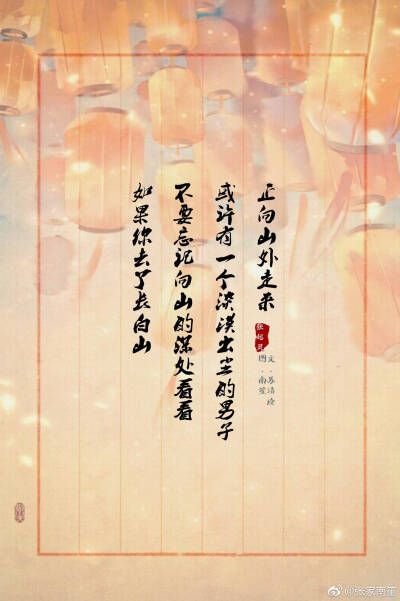 如果你去了长白山
不要忘记向山的深处看看
或许有一个淡漠出尘的男子
正向山外走来
张起灵
文·苏
图·南笙
@张家南笙